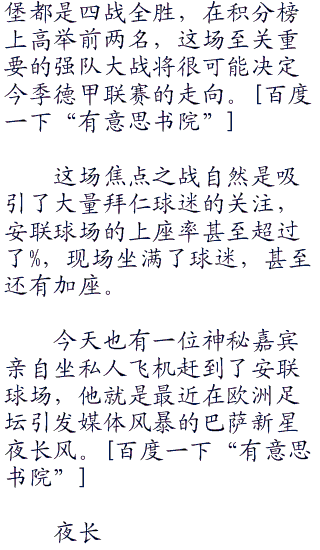 堡都是四战全胜，在积分榜
上高举前两名，这场至关重
要的强队大战将很可能决定
今季德甲联赛的走向。[百度
一下“有意思书院”]
这场焦点之战自然是吸
引了大量拜仁球迷的关注，
安联球场的上座率甚至超过
了%，现场坐满了球迷，甚至
还有加座。
今天也有一位神秘嘉宾
亲自坐私人飞机赶到了安联
球场，他就是最近在欧洲足
坛引发媒体风暴的巴萨新星
夜长风。[百度一下“有意思
书院”]
夜长